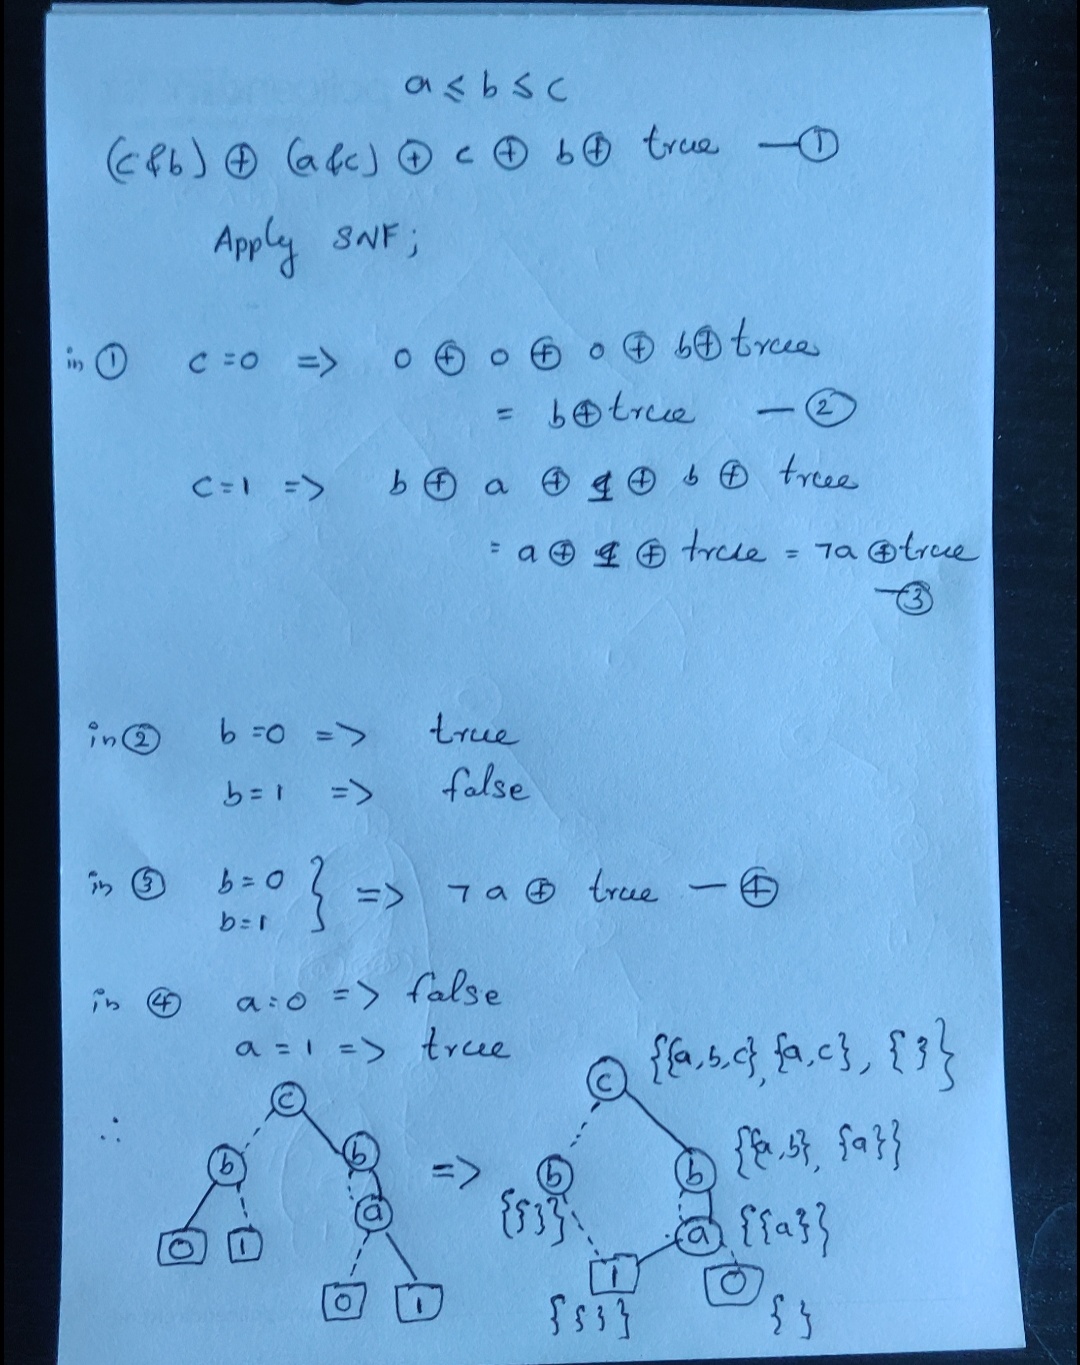 a ≤ b ≤ c
(c&b) ⊕ (a&c) ⊕ c ⊕ b ⊕ true — ①
Apply SNF;
in ① c=0 => 0 ⊕ 0 ⊕ 0 ⊕ b ⊕ true
= b ⊕ true — ②
c=1 => b ⊕ a ⊕ 1 ⊕ b ⊕ true
= a ⊕ 1 ⊕ true = ¬a ⊕ true
— ③
in ② b=0 => true
b=1 => false
in ③ b=0 } => ¬a ⊕ true — ④
b=1
in ④ a=0 => false
a=1 => true
∴ c => c {{a,b,c}, {a,c}, { }}
b b b {{ }} b {{a,b}, {a}}
a a {{a}}
0 1 1 {{ }} 0 { }
0 1